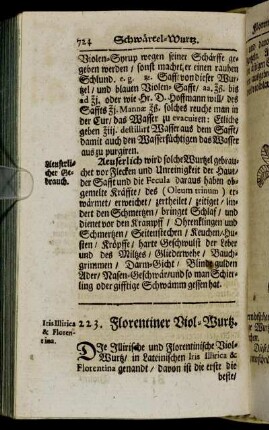 724 Schwärtel-Wurtz.
Violen-Syrup wegen seiner Schärffe ge-
geben werden / sonst machet er einen rauhen
Schlund. e. g. Safft von dieser Wur-
tzel / und blauen Violen-Safft / aa. ʒß. bis
ad ʒj. oder wie Hr. D. Hoffmann will / des
Saffts ʒj. Mannæ ʒß. solches reuche man in
der Cur / das Wasser zu evacuiren: Etliche
geben ʒiij. destillirt Wasser aus dem Safft /
damit auch den Wassersüchtigen das Wasser
aus zu purgiren.
Aeuserlich wird solche Wurtzel gebrau-
chet vor Flecken und Unreinigkeit der Haut /
der Safft und die Fecula daraus haben ob-
gemelte Kräffte / des (Oleum irinum) er-
wärmet / erweichet / zertheilet / zeitiget / lin-
dert den Schmertzen / bringet Schlaf / und
dienet vor den Krampff / Ohrenklingen und
Schmertzen / Seitenstechen / Keuchen-Hu-
sten / Kröpffe / harte Geschwulst der Leber
und des Miltzes / Gliederwehe / Bauch-
grimmen / Darm-Gicht / Blinde gulden
Ader / Nasen-Geschwär / und so man Schier-
ling oder gifftige Schwämm gessen hat.
Aeuserli-
cher Ge-
brauch.
223. Florentiner Viol-Wurtz.
Iris Illirica
& Floren-
tina.
DIe Illirische und Florentinische Viol-
Wurtz / in Lateinischen Iris Illirica &
Florentina genandt / davon ist die erste die
beste /